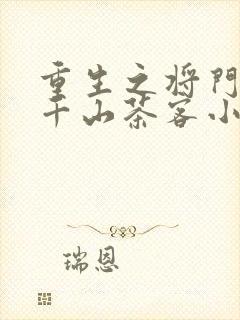 重生之将门
千山茶客小
瑞恩